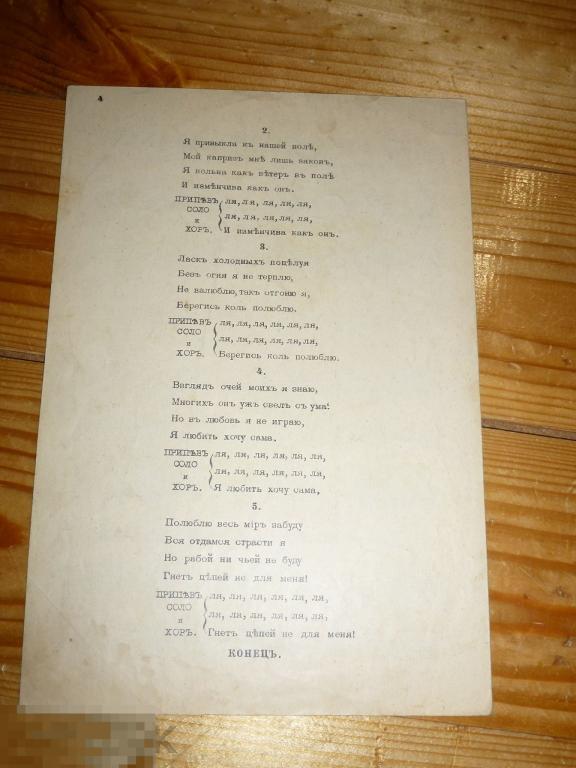 4
2.
Я привыкла къ нашей волѣ,
Мой капризъ мнѣ лишь законъ,
Я вольна какъ вѣтеръ въ полѣ
И измѣнчива какъ онъ.
ПРИПѢВЪ ля, ля, ля, ля, ля,
СОЛО
и ля, ля, ля, ля, ля,
ХОРЪ. И измѣнчива какъ онъ.
3.
Ласкъ холодныхъ поцѣлуя
Безъ огня я не терплю,
Не взлюблю, такъ отгоню я,
Берегись коль полюблю.
ПРИПѢВЪ ля, ля, ля, ля, ля, ля,
СОЛО
и ля, ля, ля, ля, ля, ля,
ХОРЪ. Берегись коль полюблю.
4.
Взглядъ очей моихъ я знаю,
Многихъ онъ ужъ свелъ съ ума!
Но въ любовь я не играю,
Я любить хочу сама.
ПРИПѢВЪ ля, ля, ля, ля, ля, ля,
СОЛО ля, ля, ля, ля, ля, ля,
и
ХОРЪ. Я любить хочу сама,
5.
Полюблю весь міръ забуду
Вся отдамся страсти я
Но рабой ни чьей не буду
Гнетъ цѣпей не для меня!
ПРИПѢВЪ ля, ля, ля, ля, ля, ля,
СОЛО ля, ля, ля, ля, ля, ля,
и
ХОРЪ. Гнетъ цѣпей не для меня!
КОНЕЦЪ.